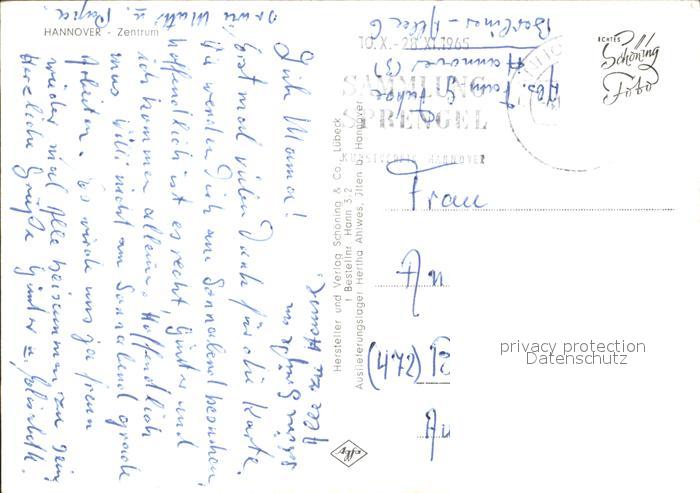 HANNOVER - Zentrum
Liebe Mama!
Erst mal vielen Dank für die Karte.
Wir werden Dich am Sonnabend besuchen,
hoffentlich ist es recht, Günter und
ich kommen allein. Hoffentlich
muss Willi nicht am Sonnabend grade
Arbeiten. Es würde uns ja freun
wieder mal Alle beisammen zu sein
Herzliche Grüße Günter u.
u. Papa.
Hersteller und Verlag Schöning & Co., Lübeck
Bestellnr. Hann 3 2
Auslieferungslager Hertha Ahlwes, Ilten b. Hannover
Agfa
10.X.-28.XI.1965
SAMMLUNG
SPRENGEL
KUNSTVEREIN HANNOVER
Abs. Fam. G.
Hannover (3)
Berliner-Allee 6
ECHTES
Schöning
Foto
Frau
An
(472)
privacy protection
Datenschutz